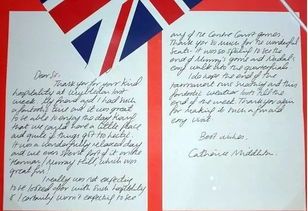 Dear Sir,
Thank you for your kind
hospitality at Wimbledon last
week. My friend and I had such
a fantastic time and it was great
to be able to enjoy the day knowing
that we could have a little place
and quite if things got too hectic.
It was a wonderfully relaxed day
and we even spent part of it on the
Henman/Murray Hill, which was
great fun!
I really was not expecting
to be looked after with such hospitality
& I certainly wasn't expecting to see
any of the Centre Court games.
Thank you so much for the wonderful
seats - it was so exciting to see the
end of Murray's game and Nadal
through into the quarterfinals.
I do hope the end of the
tournament runs smoothly and this
fantastic weather lasts till the
end of the week. Thank you again
for making it such a fun and
day visit.
Best wishes,
Catherine Middleton